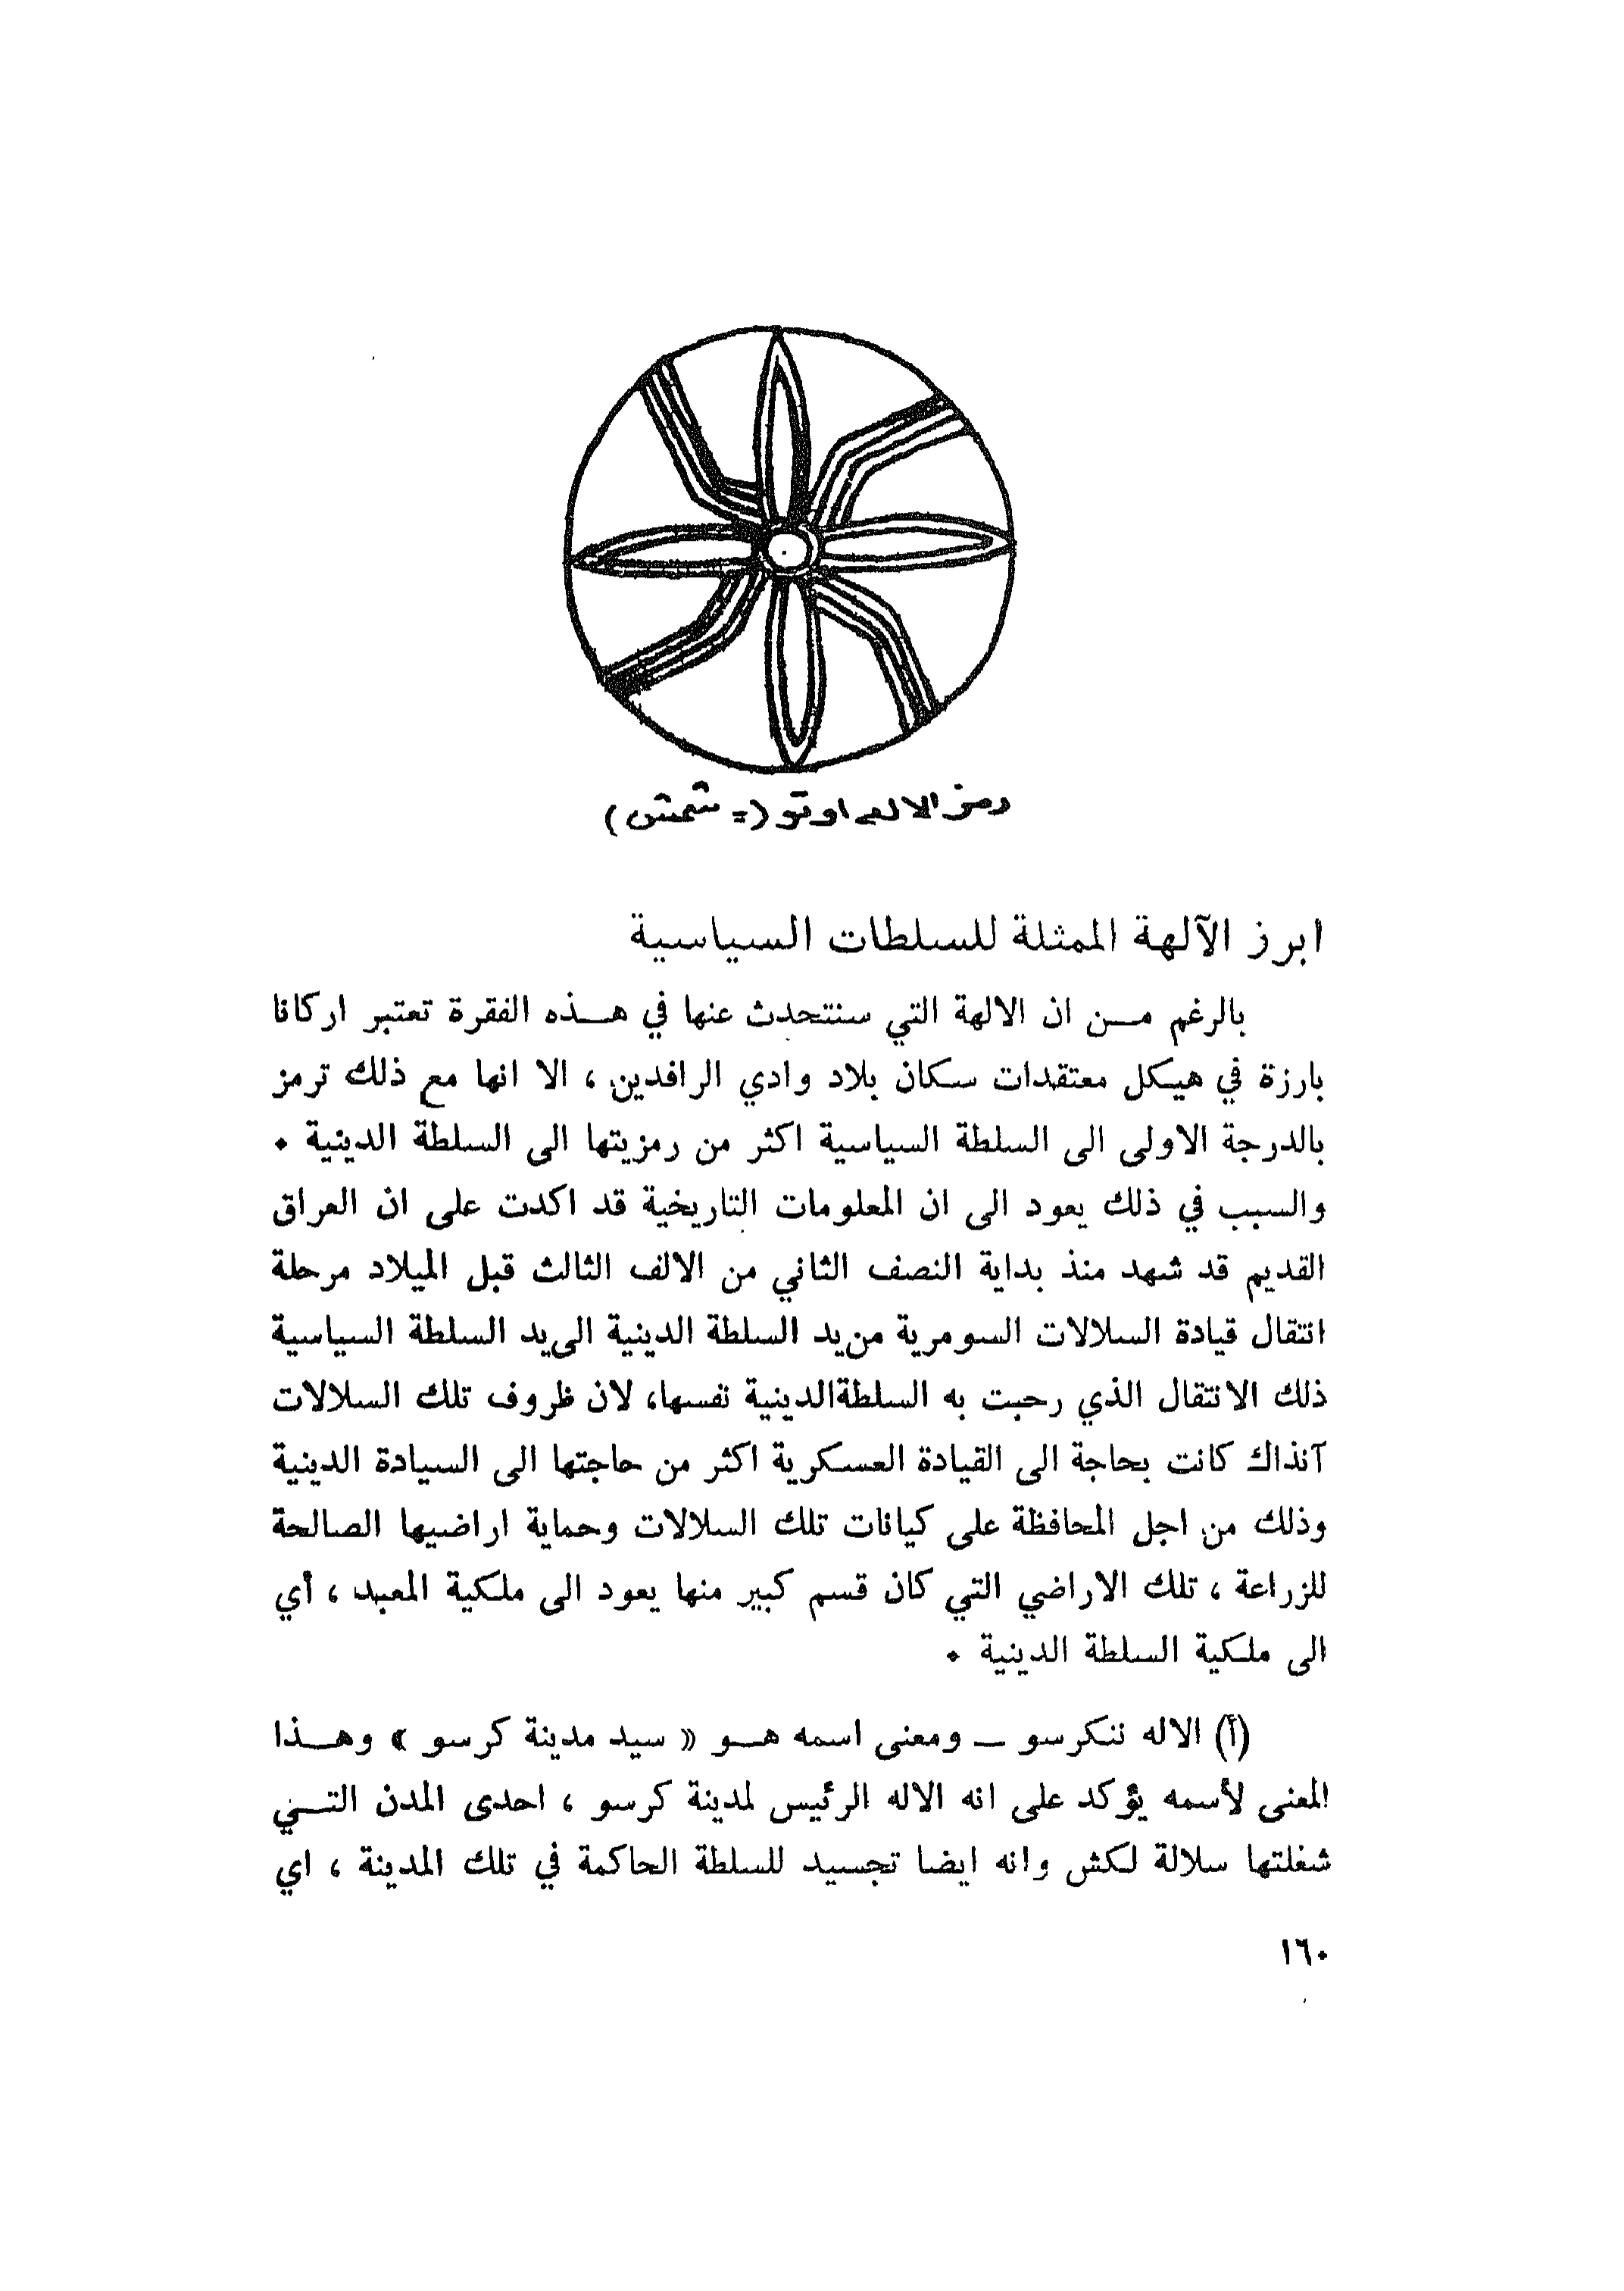 رمز الاله اوتو (= شمش)
ابرز الآلهة الممثلة للسلطات السياسية
بالرغم مـــن ان الالهة التي سنتحدث عنها في هـــذه الفقرة تعتبر اركانا
بارزة في هيكل معتقدات سكان بلاد وادي الرافدين ، الا انها مع ذلك ترمز
بالدرجة الاولى الى السلطة السياسية اكثر من رمزيتها الى السلطة الدينية ٠
والسبب في ذلك يعود الى ان المعلومات التاريخية قد اكدت على ان العراق
القديم قد شهد منذ بداية النصف الثاني من الالف الثالث قبل الميلاد مرحلة
انتقال قيادة السلالات السومرية من يد السلطة الدينية الى يد السلطة السياسية
ذلك الانتقال الذي رحبت به السلطة الدينية نفسها، لان ظروف تلك السلالات
آنذاك كانت بحاجة الى القيادة العسكرية اكثر من حاجتها الى السيادة الدينية
وذلك من اجل المحافظة على كيانات تلك السلالات وحماية اراضيها الصالحة
للزراعة ، تلك الاراضي التي كان قسم كبير منها يعود الى ملكية المعبد ، أي
الى ملكية السلطة الدينية ٠
(آ) الاله ننكرسو ــ ومعنى اسمه هـــو « سيد مدينة كرسو » وهـــذا
المعنى لأسمه يؤكد على انه الاله الرئيس لمدينة كرسو ، احدى المدن التـــي
شغلتها سلالة لكش وانه ايضا تجسيد للسلطة الحاكمة في تلك المدينة ، اي
١٦٠